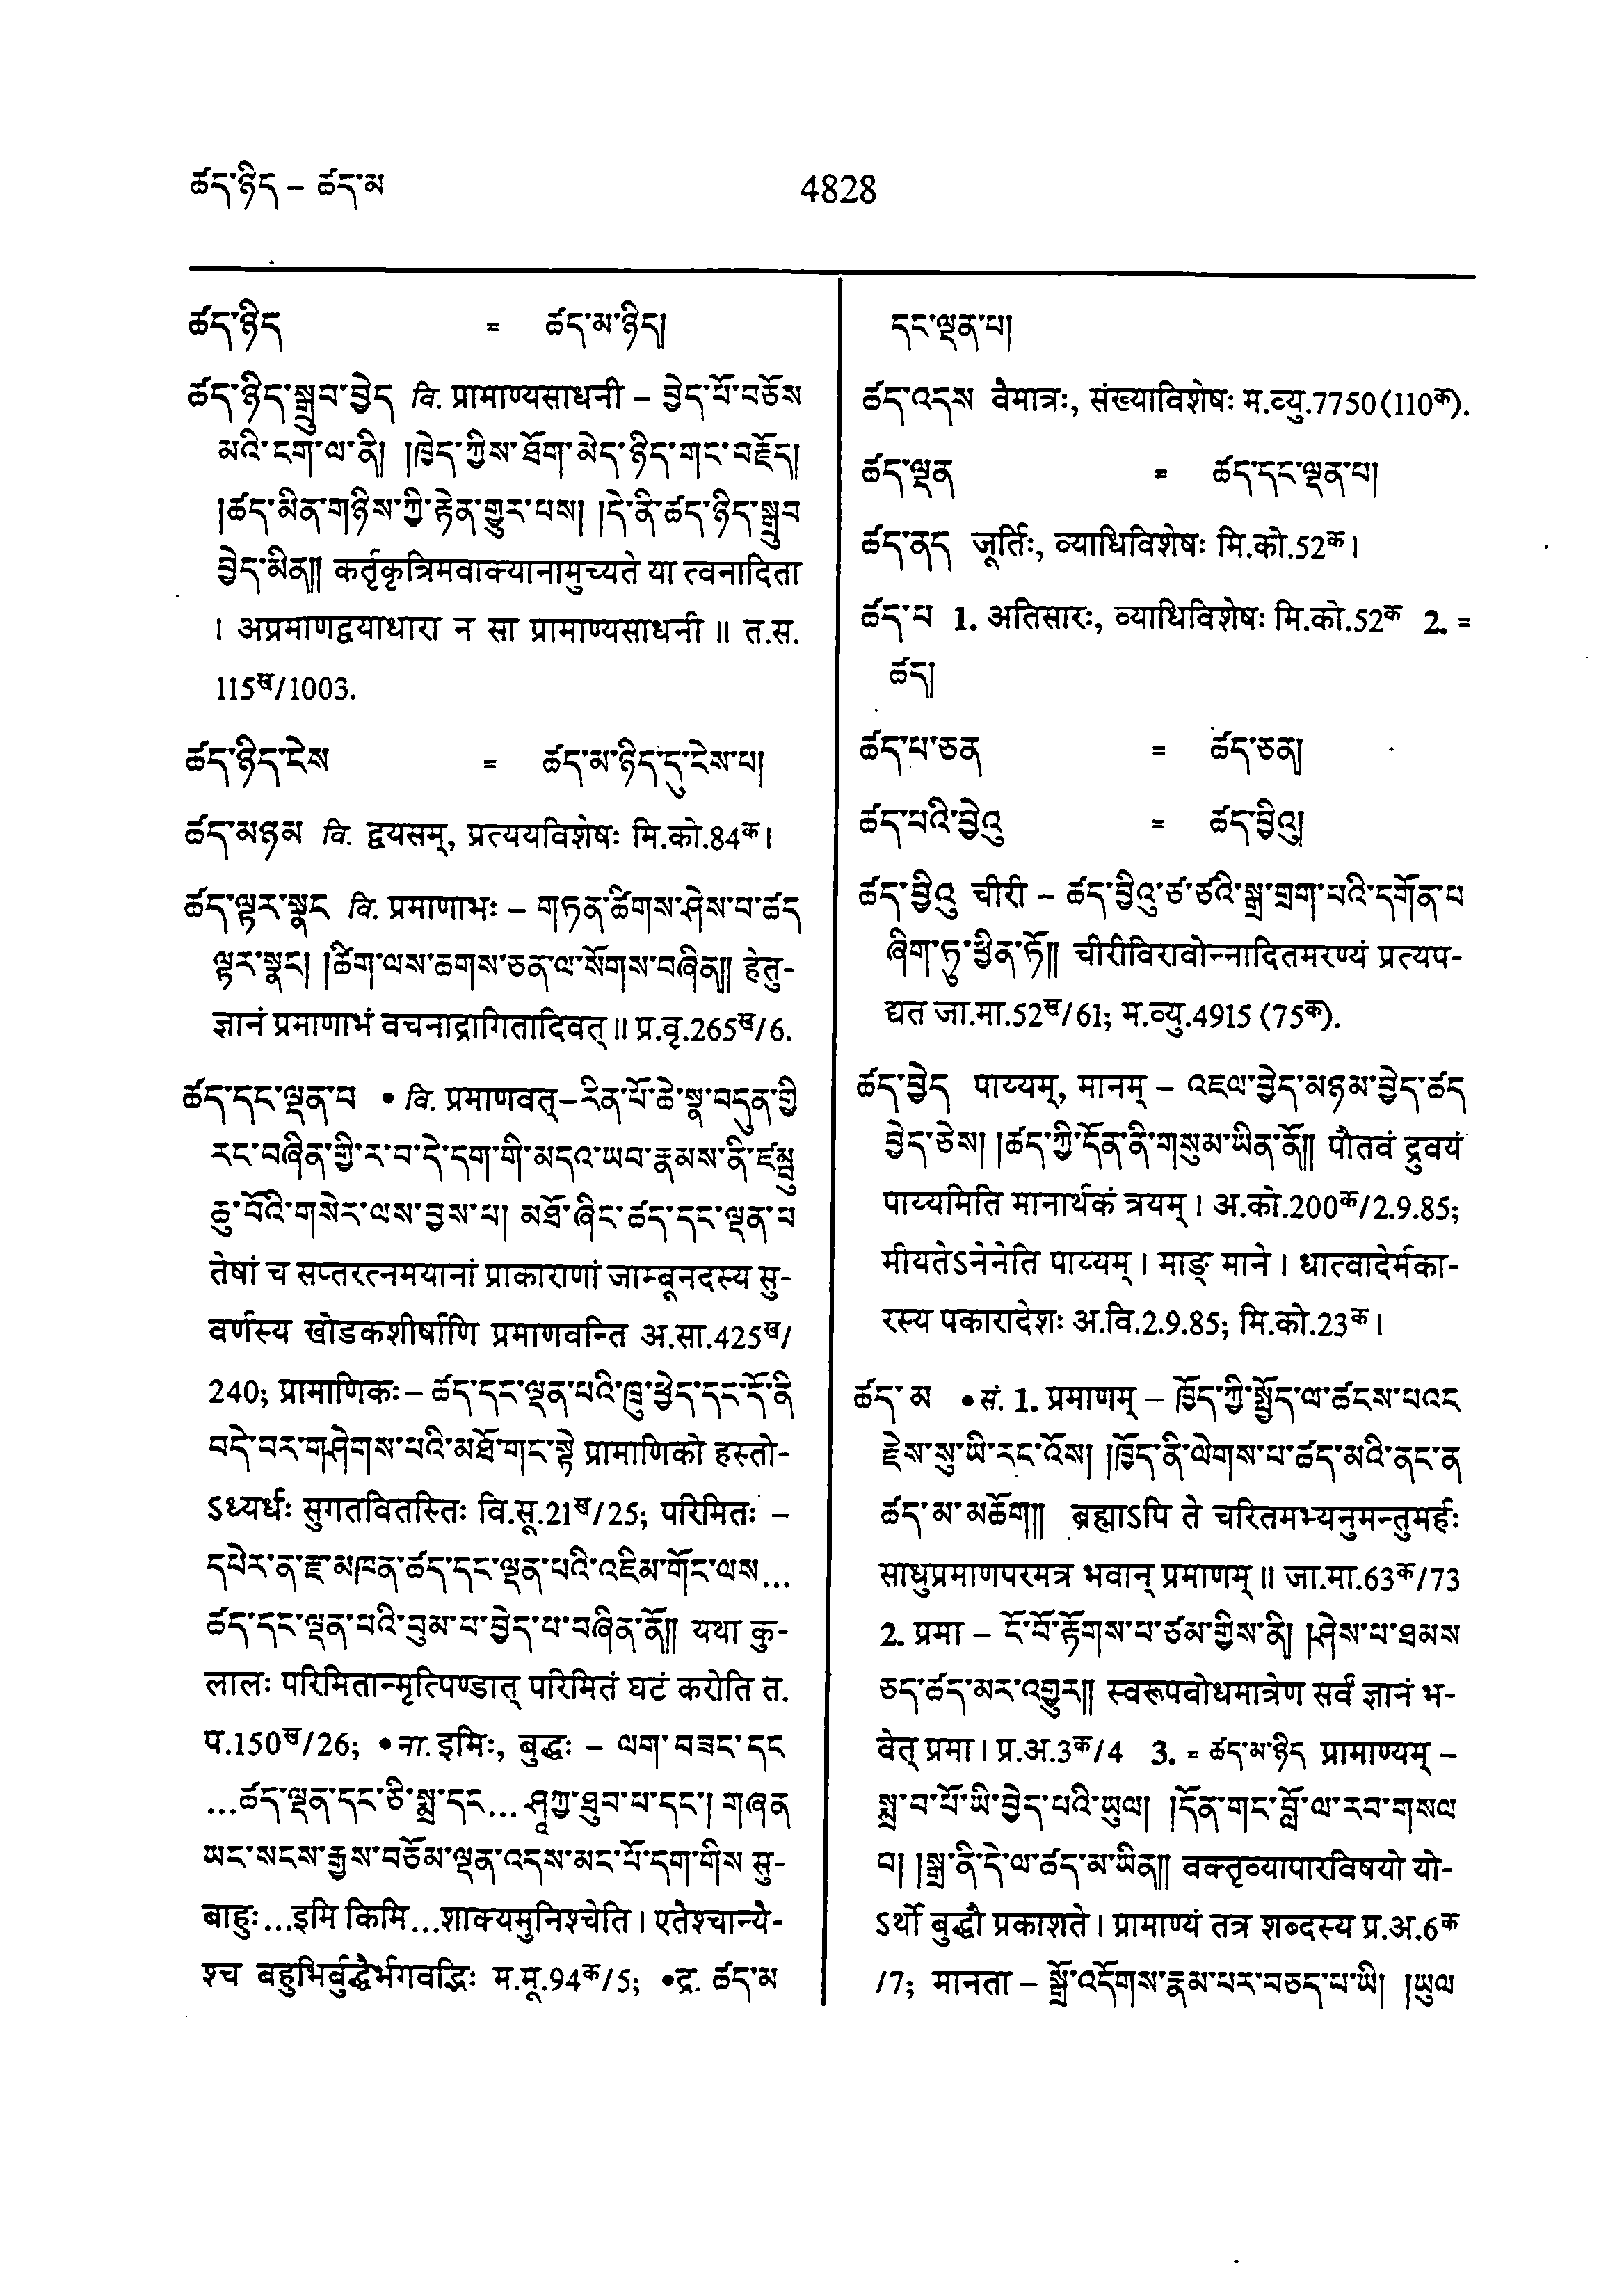 ཚད་ཉིད – ཚད་མ
4828
ཚད་ཉིད = ཚད་མ་ཉིད།
ཚད་ཉིད་སྒྲུབ་བྱེད वि. प्रामाण्यसाधनी – བྱེད་པོ་བཅོས
མའི་ངག་ལ་ནི། །ཁྱེད་ཀྱིས་ཐོག་མེད་ཉིད་གང་བརྗོད།
།ཚད་མིན་གཉིས་ཀྱི་རྟེན་གྱུར་པས། །དེ་ནི་ཚད་ཉིད་སྒྲུབ
བྱེད་མིན༎ कर्तृकृत्रिमवाक्यानामुच्यते या त्वनादिता
। अप्रमाणद्वयाधारा न सा प्रामाण्यसाधनी ॥ त.स.
115ख/1003.
ཚད་ཉིད་ངེས = ཚད་མ་ཉིད་དུ་ངེས་པ།
ཚད་མཉམ वि. द्वयसम्, प्रत्ययविशेषः मि.को.84क।
ཚད་ལྟར་སྣང वि. प्रमाणाभः – གཏན་ཚིགས་ཤེས་པ་ཚད
ལྟར་སྣང། །ཚིག་ལས་ཆགས་ཅན་ལ་སོགས་བཞིན༎ हेतु-
ज्ञानं प्रमाणाभं वचनाद्रागितादिवत् ॥ प्र.वृ.265ख/6.
ཚད་དང་ལྡན་པ • वि. प्रमाणवत् – རིན་པོ་ཆེ་སྣ་བདུན་གྱི
རང་བཞིན་གྱི་ར་བ་དེ་དག་གི་མདའ་ཡབ་རྣམས་ནི་ཛམྦུ
ཆུ་བོའི་གསེར་ལས་བྱས་པ། མཐོ་ཞིང་ཚད་དང་ལྡན་པ
तेषां च सप्तरत्नमयानां प्राकाराणां जाम्बूनदस्य सु-
वर्णस्य खोडकशीर्षाणि प्रमाणवन्ति अ.सा.425ख/
240; प्रामाणिकः – ཚད་དང་ལྡན་པའི་ཁྲུ་ཕྱེད་དང་དོ་ནི
བདེ་བར་གཤེགས་པའི་མཐོ་གང་སྟེ प्रामाणिको हस्तो-
ऽध्यर्धः सुगतवितस्तिः वि.सू.21ख/25; परिमितः –
དཔེར་ན་རྫ་མཁན་ཚད་དང་ལྡན་པའི་འཇིམ་གོང་ལས...
ཚད་དང་ལྡན་པའི་བུམ་པ་བྱེད་པ་བཞིན་ནོ༎ यथा कु-
लालः परिमितान्मृत्पिण्डात् परिमितं घटं करोति त.
प.150ख/26; • ना. इमिः, बुद्धः – ལག་བཟང་དང
...ཚད་ལྡན་དང་ཅི་སྨྲ་དང...ཤཱཀྱ་ཐུབ་པ་དང་། གཞན
ཡང་སངས་རྒྱས་བཅོམ་ལྡན་འདས་མང་པོ་དག་གིས सु-
बाहुः...इमि किमि...शाक्यमुनिश्चेति । एतैश्चान्यै-
श्च बहुभिर्बुद्धैर्भगवद्भिः म.मू.94क/5; •द्र. ཚད་མ
དང་ལྡན་པ།
ཚད་འདས वैमात्रः, संख्याविशेषः म.व्यु.7750 (110क).
ཚད་ལྡན = ཚད་དང་ལྡན་པ།
ཚད་ནད जूर्तिः, व्याधिविशेषः मि.को.52क।
ཚད་པ 1. अतिसारः, व्याधिविशेषः मि.को.52क 2. =
ཚད།
ཚད་པ་ཅན = ཚད་ཅན།
ཚད་པའི་བྱེའུ = ཚད་བྱིའུ།
ཚད་བྱིའུ चीरी – ཚད་བྱིའུ་ཙ་ཙའི་སྒྲ་གྲག་པའི་དགོན་པ
ཞིག་ཏུ་ཕྱིན་ཏོ༎ चीरीविरावोन्नादितमरण्यं प्रत्यप-
द्यत जा.मा.52ख/61; म.व्यु.4915 (75क).
ཚད་བྱེད पाय्यम्, मानम् – འཇལ་བྱེད་མཉམ་བྱེད་ཚད
བྱེད་ཅེས། །ཚད་ཀྱི་དོན་ནི་གསུམ་ཡིན་ནོ༎ पौतवं द्रुवयं
पाय्यमिति मानार्थकं त्रयम् । अ.को.200क/2.9.85;
मीयतेऽनेनेति पाय्यम् । माङ् माने । धात्वादेर्मका-
रस्य पकारादेशः अ.वि.2.9.85; मि.को.23क।
ཚད་མ • सं. 1. प्रमाणम् – ཁྱོད་ཀྱི་སྤྱོད་ལ་ཚངས་པའང
རྗེས་སུ་ཡི་རང་འོས། །ཁྱོད་ནི་ལེགས་པ་ཚད་མའི་ནང་ན
ཚད་མ་མཆོག༎ ब्रह्माऽपि ते चरितमभ्यनुमन्तुमर्हः
साधुप्रमाणपरमत्र भवान् प्रमाणम् ॥ जा.मा.63क/73
2. प्रमा – ངོ་བོ་རྟོགས་པ་ཙམ་གྱིས་ནི། །ཤེས་པ་ཐམས
ཅད་ཚད་མར་འགྱུར༎ स्वरूपबोधमात्रेण सर्वं ज्ञानं भ-
वेत् प्रमा । प्र.अ.3क/4 3. = ཚད་མ་ཉིད प्रामाण्यम् –
སྨྲ་བ་པོ་ཡི་བྱེད་པའི་ཡུལ། །དོན་གང་བློ་ལ་རབ་གསལ
བ། །སྒྲ་ནི་དེ་ལ་ཚད་མ་ཡིན༎ वक्तृव्यापारविषयो यो-
ऽर्थो बुद्धौ प्रकाशते । प्रामाण्यं तत्र शब्दस्य प्र.अ.6क
/7; मानता – སྒྲོ་འདོགས་རྣམ་པར་བཅད་པ་ཡི། །ཡུལ